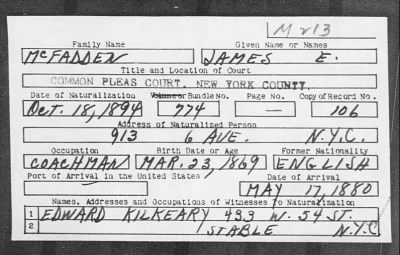 M 213
Family Name Given Name or Names
McFADDEN JAMES E.
Title and Location of Court
COMMON PLEAS COURT, NEW YORK COUNTY
Date of Naturalization Volume or Bundle No. Page No. Copy of Record No.
Oct. 18, 1894 774 — 106
Address of Naturalized Person
913 6 AVE. N.Y.C.
Occupation Birth Date or Age Former Nationality
COACHMAN MAR. 23, 1869 ENGLISH
Port of Arrival in the United States Date of Arrival
MAY 17, 1880
Names, Addresses and Occupations of Witnesses to Naturalization
1 EDWARD KILKEARY 433 W. 54 ST.
2 STABLE N.Y.C